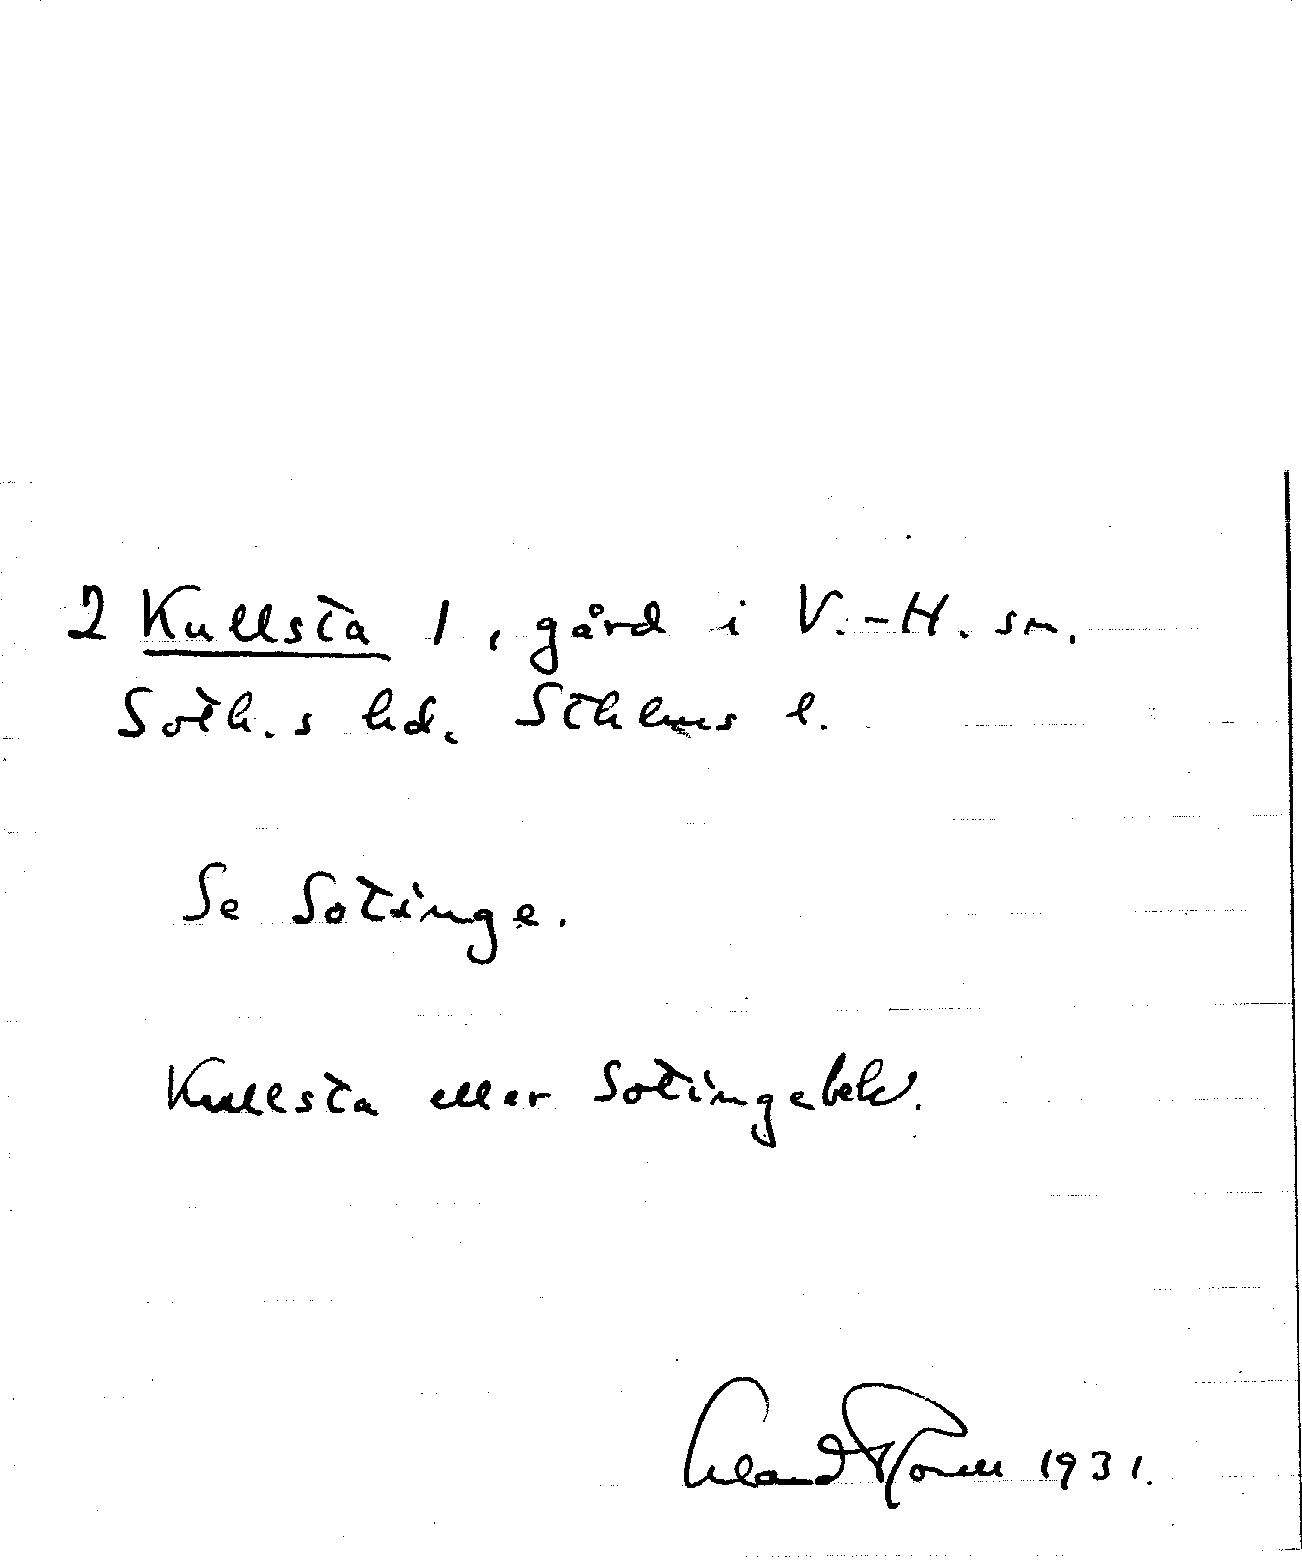 2 Kullsta 1, gård i V.-H. sn.
Soth.s hd. Sthlms l.
Se Sotinge.
Kullsta eller Sotingebek.
Erland Rosell 1931.